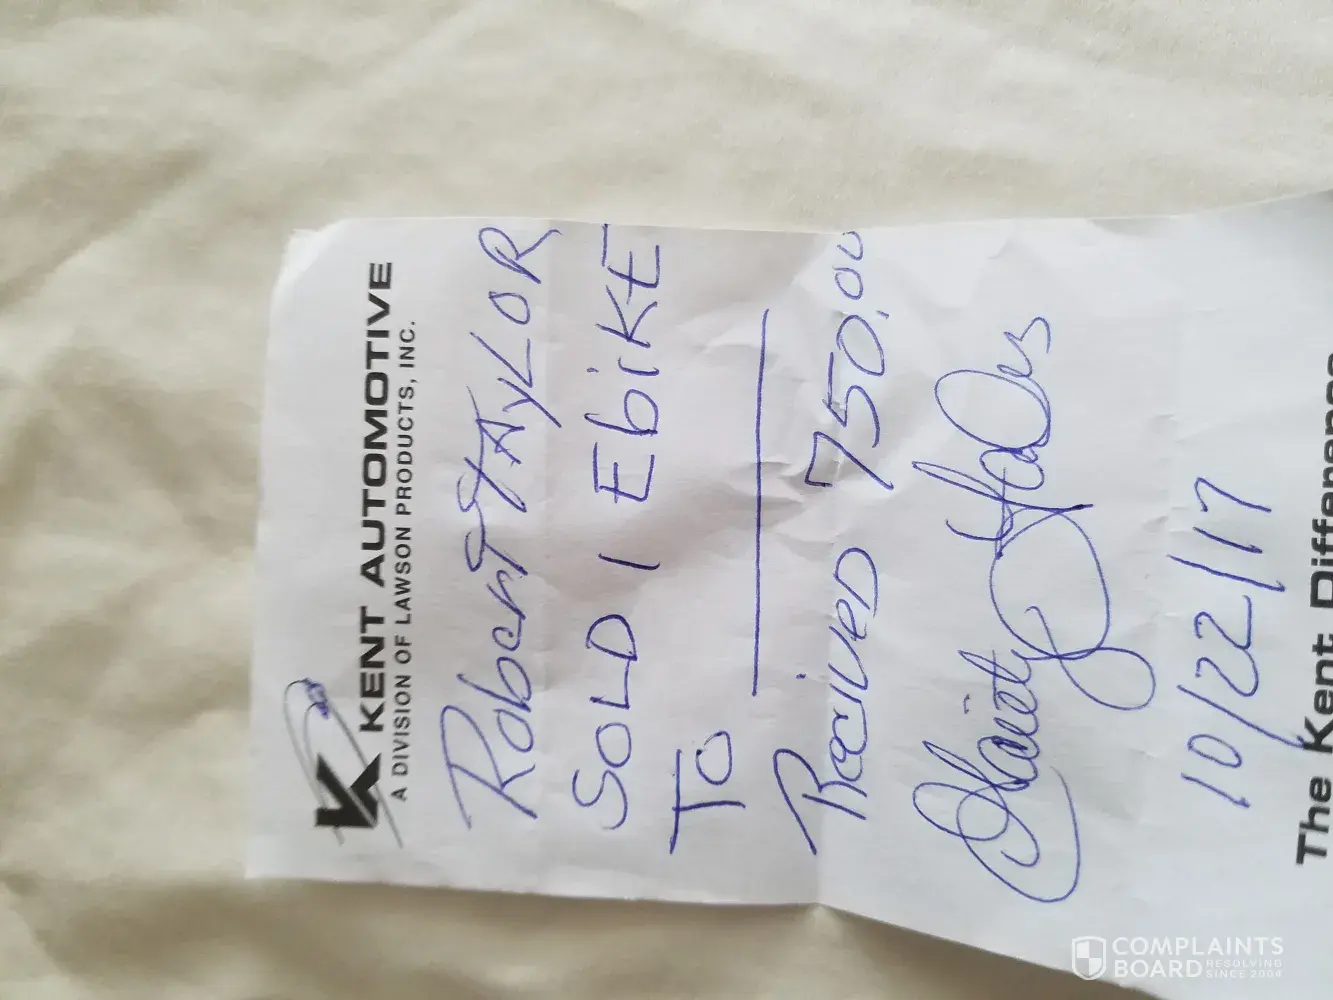 KENT AUTOMOTIVE
A DIVISION OF LAWSON PRODUCTS, INC.
Robert TAyLOR
SOLD 1 EbiKE
TO
Received 750.00
10/22/17
The Kent Difference
COMPLAINTS
BOARD RESOLVING
SINCE 2004